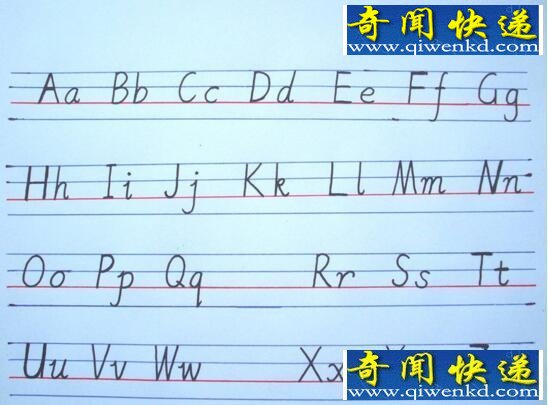 奇闻快递
www.qiwenkd.com
Aa Bb Cc Dd Ee Ff Gg
Hh Ii Jj Kk Ll Mm Nn
Oo Pp Qq Rr Ss Tt
Uu Vv Ww Xx
奇闻快递
www.qiwenkd.com